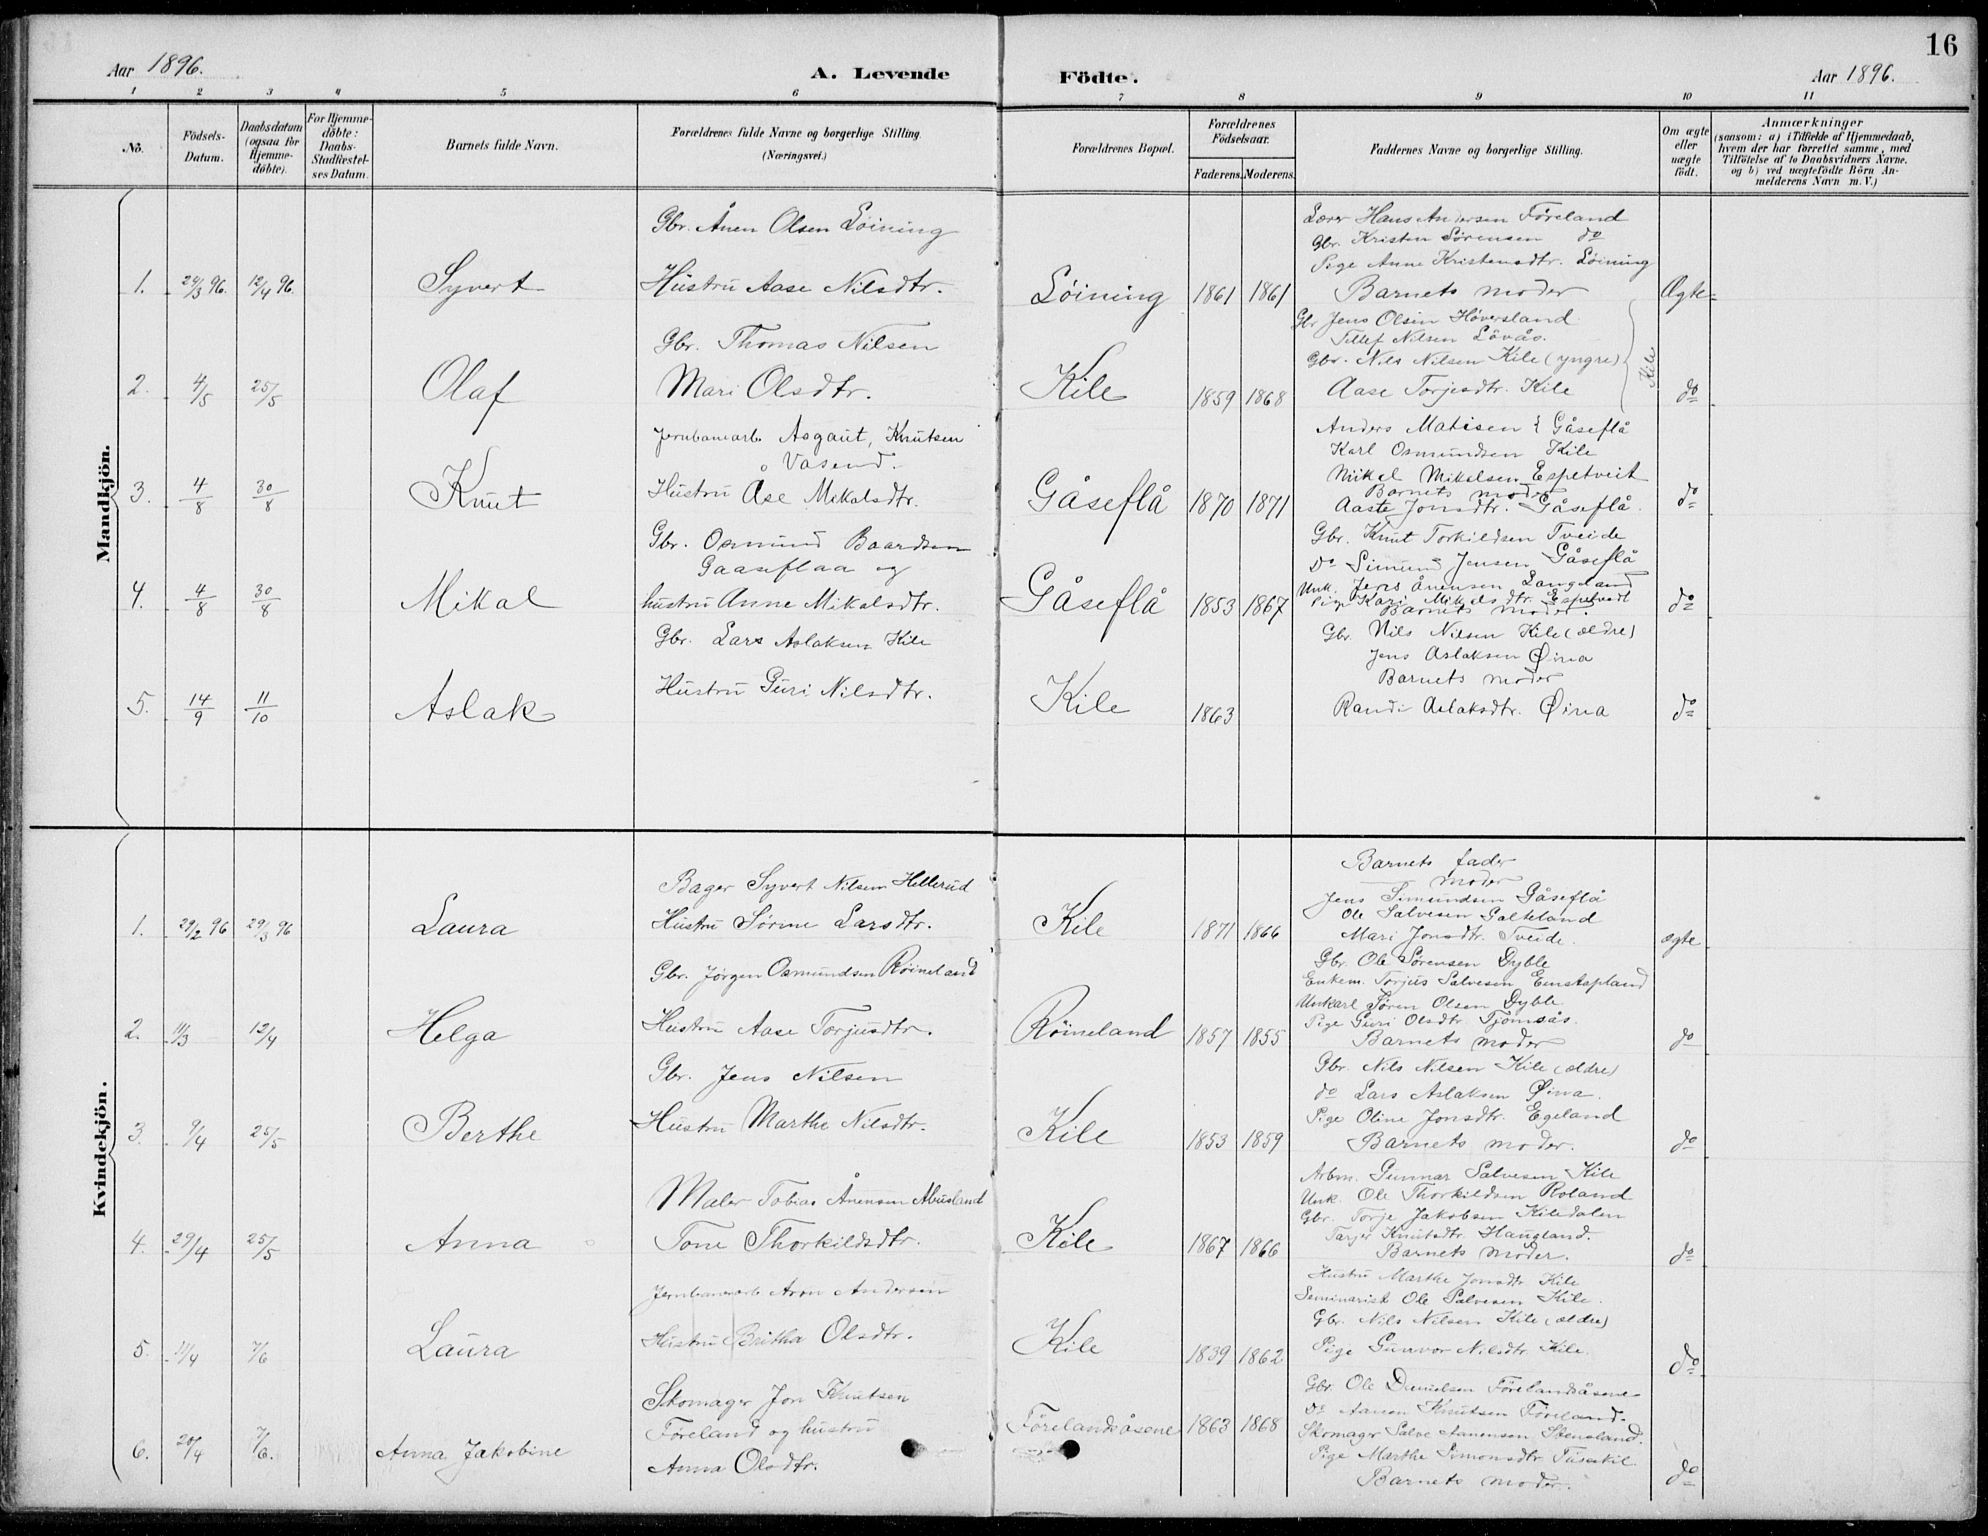 16
Aar 1896.
A. Levende
Födte.
Aar 1896.
1 2 3 4 5 6 7 8 9 10 11
No.
Födsels-Datum.
Daabsdatum (ogsaa for Hjemme-döbte).
For Hjemme-döbte: Daabs-Stadfæstel-ses Datum.
Barnets fulde Navn.
Forældrenes fulde Navne og borgerlige Stilling. (Næringsvei.)
Forældrenes Bopæl.
Forældrenes Födselsaar.
Faderens. Moderens.
Faddernes Navne og borgerlige Stilling.
Om ægte eller uægte født.
Anmærkninger
(saasom: a) i Tilfælde af Hjemmedaab, hvem der har forrettet samme, med Tilföielse af to Daabsvidners Navne. og b) ved uægtefödte Börn An-melderens Navn m. V.)
Mandkjön.
Gbr. Ånen Olsen Löining
1. 29/3 96. 12/4 96 Syvert Hustru Aase Nilsdtr. Löining 1861 1861
Lærer Hans Andersen Föreland
Gbr. Kristen Sörensen do
Pige Anne Kristensdtr. Löining
Barnets moder
Ægte
Gbr. Thomas Nilsen
2. 4/5 25/5 Olaf Mari Olsdtr. Kile 1859 1868
Gbr Jens Olsen Höversland
Tellef Nilsen Lövås.
Gbr. Nils Nilsen Kile (yngre)
Aase Torjesdtr. Kile
Kile
do
Jernbanearb. Asgaut Knutsen
Våsend.
3. 4/8 30/8 Knut Hustru Åse Mikalsdtr. Gåseflå 1870 1871
Anders Matisen Gåseflå
Karl Osmundsen Kile
Mikkel Mikalsen Espetveit
Barnets moder
Aaste Jonsdtr. Gåseflå.
do
Gbr. Osmund Baardsen
Gaaseflaa og
4. 4/8 30/8 Mikal hustru Anne Mikalsdtr. Gåseflå 1853 1867
Gbr. Knut Torkildsen Tveide
Do Simund Jensen Gåseflå
Unk. Jens Ånensen Langeland
Pige Kari Mikalsdtr. Espetvedt
Barnets moder.
do
Gbr. Lars Aslaksen Kile
5. 14/9 11/10 Aslak Hustru Guri Nilsdtr. Kile 1863
Gbr Nils Nilsen Kile (ældre)
Jens Aslaksen Øina
Barnets moder
Randi Aslaksdtr. Øina
do
Kvindekjön.
Bager Syvert Nilsen Hellerud
1. 29/2 96 29/3 96 Laura Hustru Sörine Larsdtr. Kile 1871 1866
Barnets fader
moder
Jens Simundsen Gåseflå
Ole Salvesen Galteland
Mari Jonsdtr. Tveide.
ægte
Gbr. Jörgen Osmundsen Röineland
2. 11/3 12/4 Helga Hustru Aase Torjusdtr. Röineland 1857 1855
Gbr. Ole Sörensen Dyble
Enkem. Torjus Salvesen Einstapland
Unkarl Sören Olsen Dyble
Pige Guri Olsdtr. Tjömsås
Barnets moder
do
Gbr. Jens Nilsen
3. 9/4 25/5 Berthe Hustru Marthe Nilsdtr. Kile 1853 1859
Gbr. Nils Nilsen Kile (ældre)
do Lars Aslaksen Øina.
Pige Oline Jonsdtr. Egeland
Barnets moder.
do
Maler Tobias Ånensen Abusland
4. 29/4 25/5 Anna Tone Thorkildsdtr. Kile 1867 1866
Arbm. Gunnar Salvesen Kile
Unk. Ole Thorkildsen Roland
Gbr. Torje Jakobsen Kiledalen
Knutsdtr. Haugland.
Barnets moder.
do
Jernbanearb. Aron Andersen
5. 7/6 Laura Hustru Britha Olsdtr. Kile 1839 1862
Hustru Marthe Jonsdtr Kile
Seminarist Ole Salvesen Kile.
Gbr. Nils Nilsen Kile (ældre)
Pige Gunvor Nilsdtr. Kile.
do
Skomager Jon Knutsen
Föreland og hustru
6. 20/4 7/6. Anna Jakobine Anna Olsdtr. Förelandsåsene 1863 1868
Gbr. Ole Danielsen Förelandsåsene
Do Aanon Knutsen Föreland.
Skomager Salve Aanensen Stensland.
Pige Marthe Simonsdtr
Barnets moder.
do